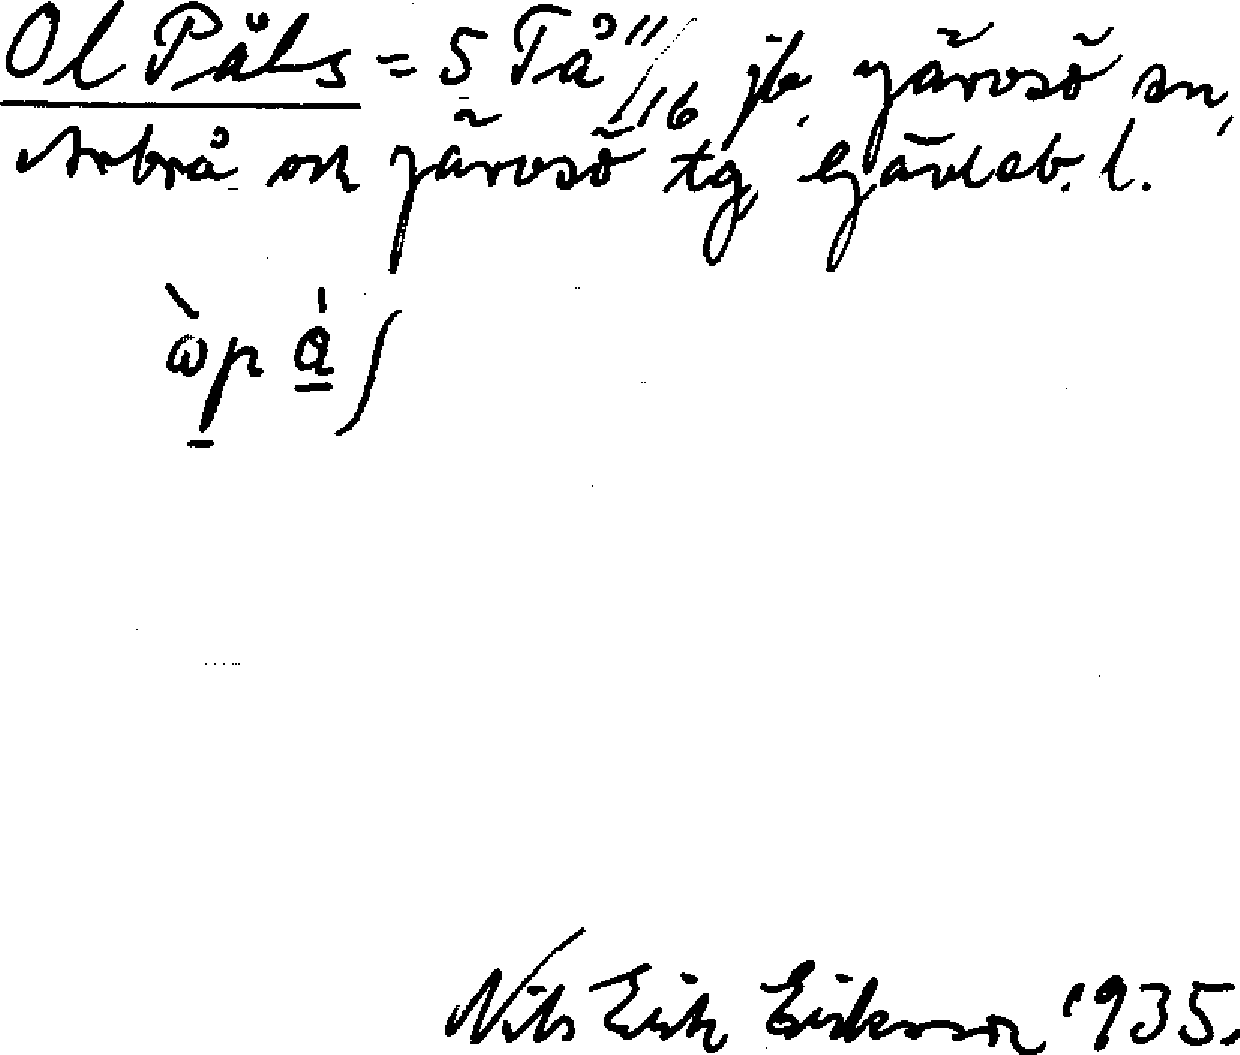 Ol Påls = 5 Tå "/16 jb. Järvsö sn,
Arbrå och Järvsö tg, Gävleb. l.
Nils Erik Eriksson 1935.